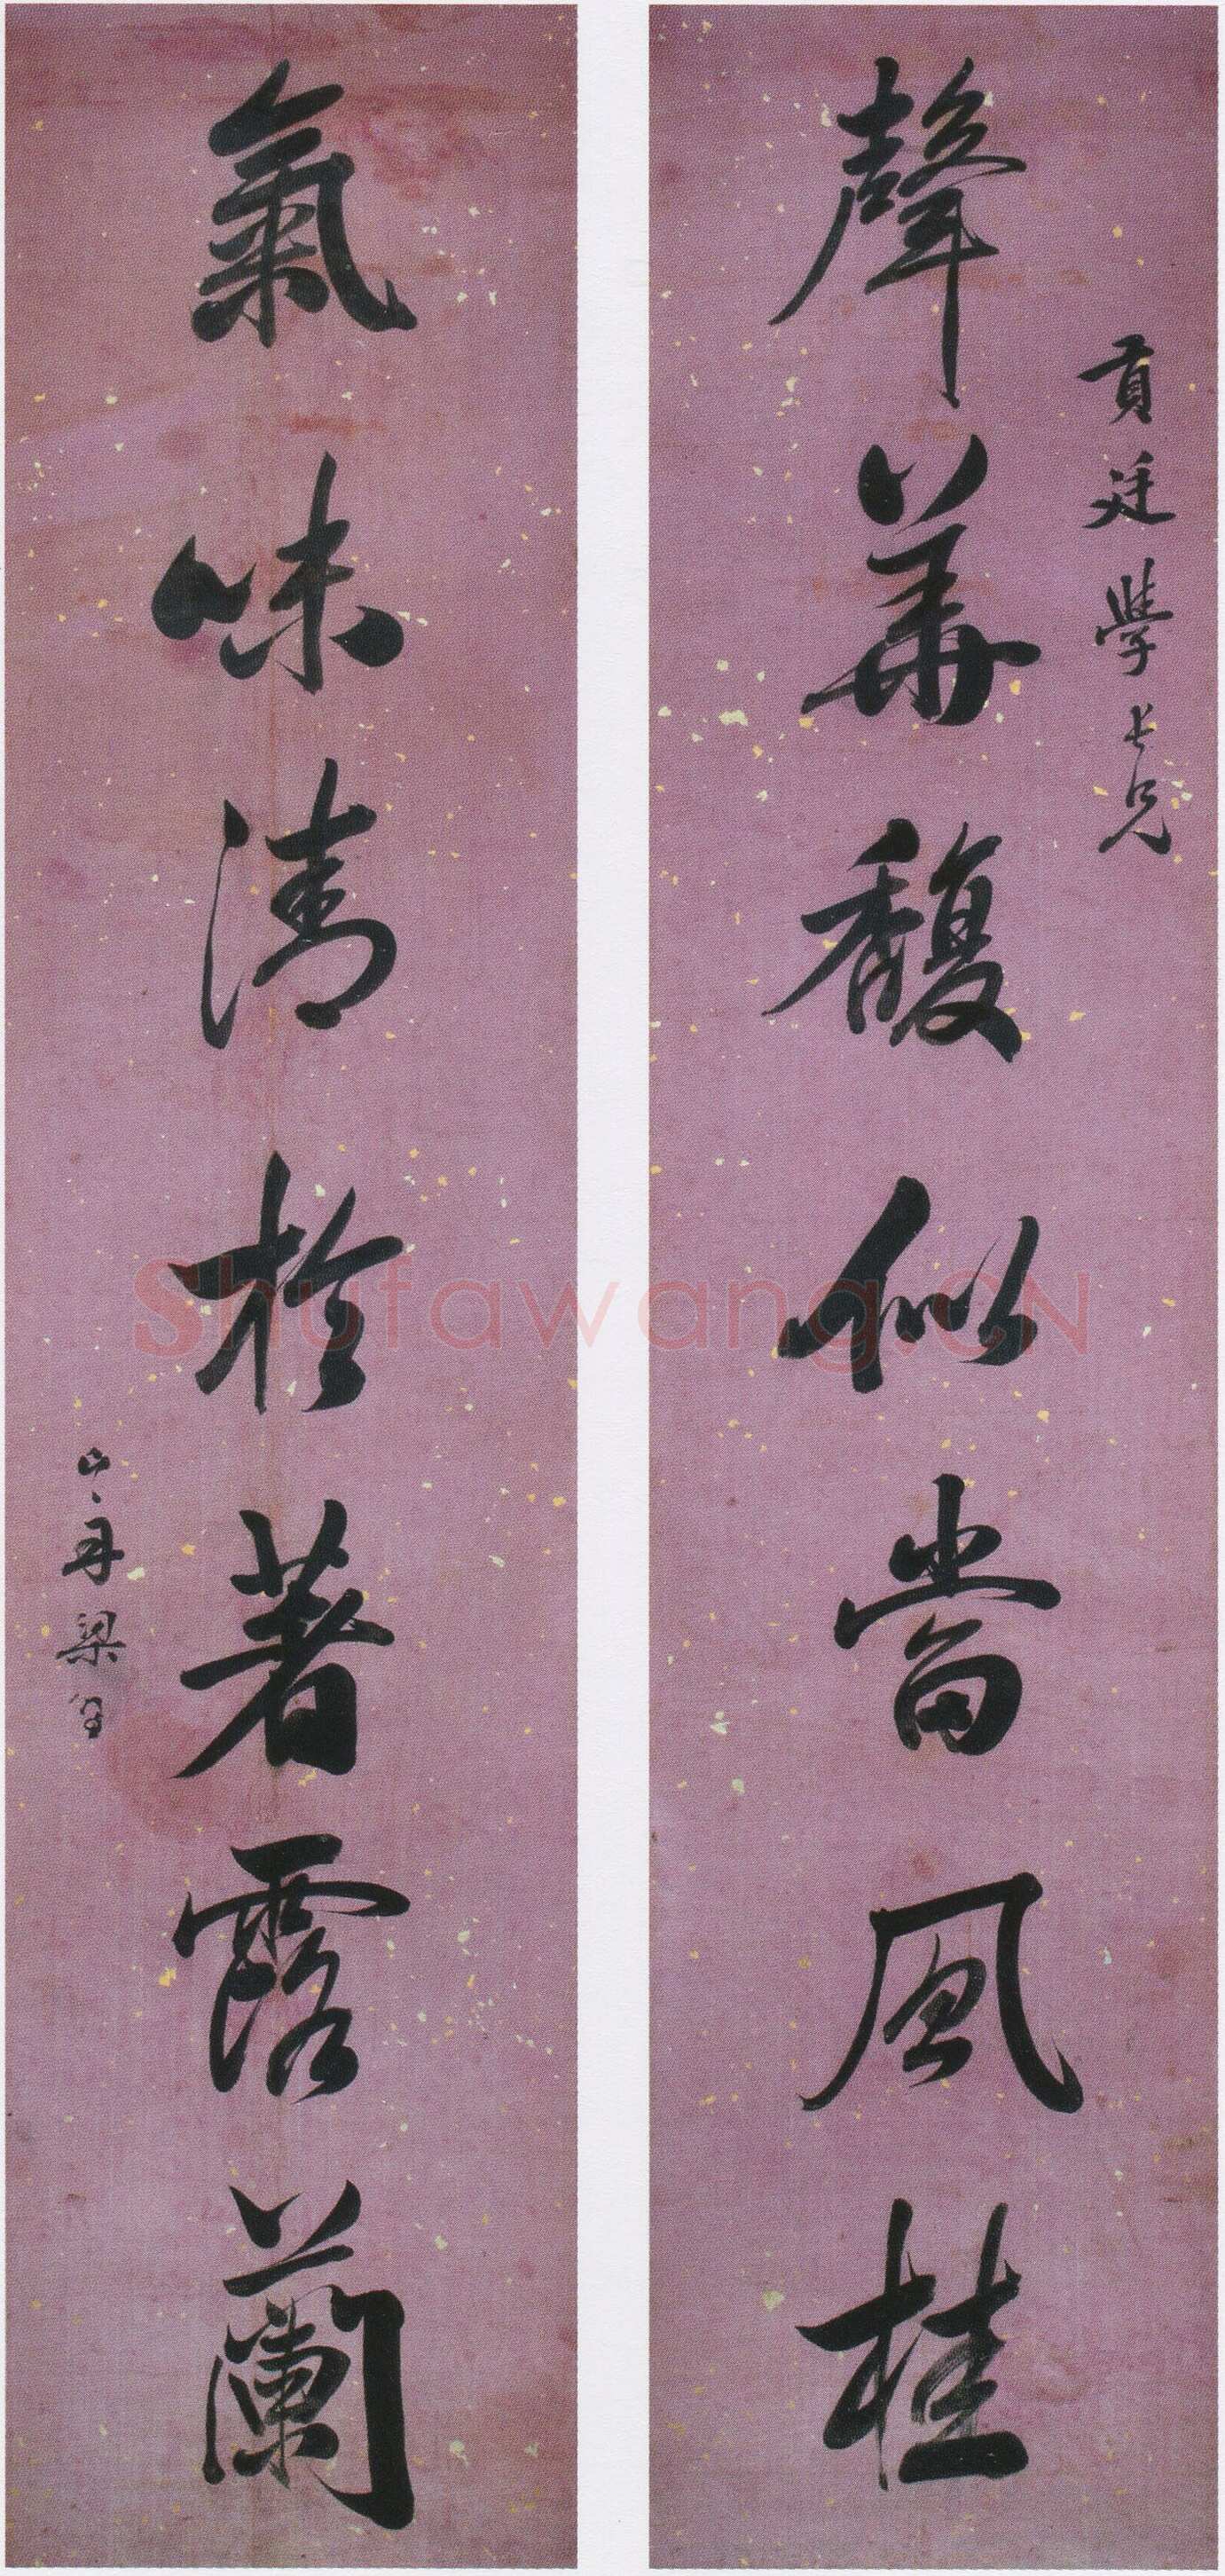 貢廷學長兄
聲華馥似當風桂
氣味清於著露蘭
山舟梁同書
Shufawang.CN